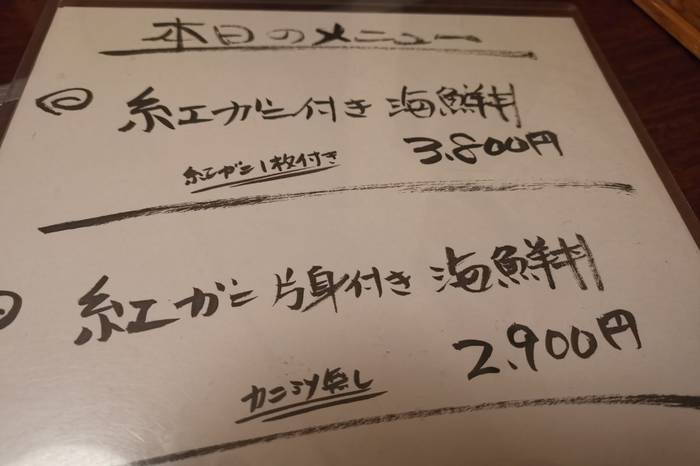 本日のメニュー
紅ガニ付き 海鮮丼
紅ガニ1枚付き
3.800円
紅ガニ 片身付き 海鮮丼
2.900円
カニミソ無し